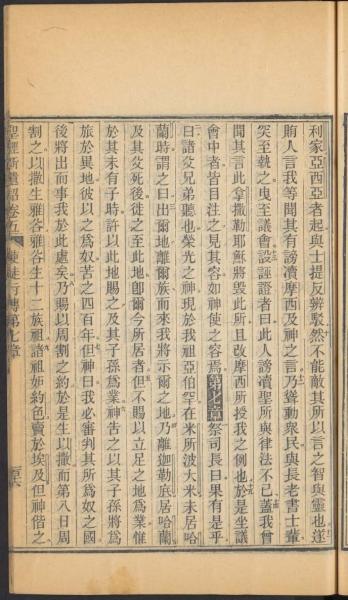 利家亞西亞者起與士提反辨駁然不能敵其所以言之智與靈也遂
賄人言我等聞其有謗讟摩西及神之言乃聳動衆民與長老書士輩
突至執之曳至議會設誣證者曰此人謗讟聖所與律法不已蓋我曾
聞其言此拿撒勒耶穌將毀此所且改摩西所授我之例也於是坐議
會中者皆目注之見其容如神使之容焉第七章祭司長曰果有是乎
曰諸父兄弟聽也榮光之神現於我祖亞伯罕在米所波大米未居哈
蘭時謂之曰出爾地離爾族而來我將示爾之地乃離迦勒底居哈蘭
及其父死後徙之至此地卽爾今所居者但不賜以立足之地爲業惟
於其未有子時許以此地賜之及其子孫爲業神告之以其子孫將爲
旅於異地彼以之爲奴苦之四百年但神曰我必審判其所爲奴之國
後將出而事我於此處矣乃賜以周割之約於是生以撒而第八日周
割之以撒生雅各雅各生十二族祖諸祖妒約色賣於埃及但神偕之
聖經新遺詔卷五 使徒行傳第七章